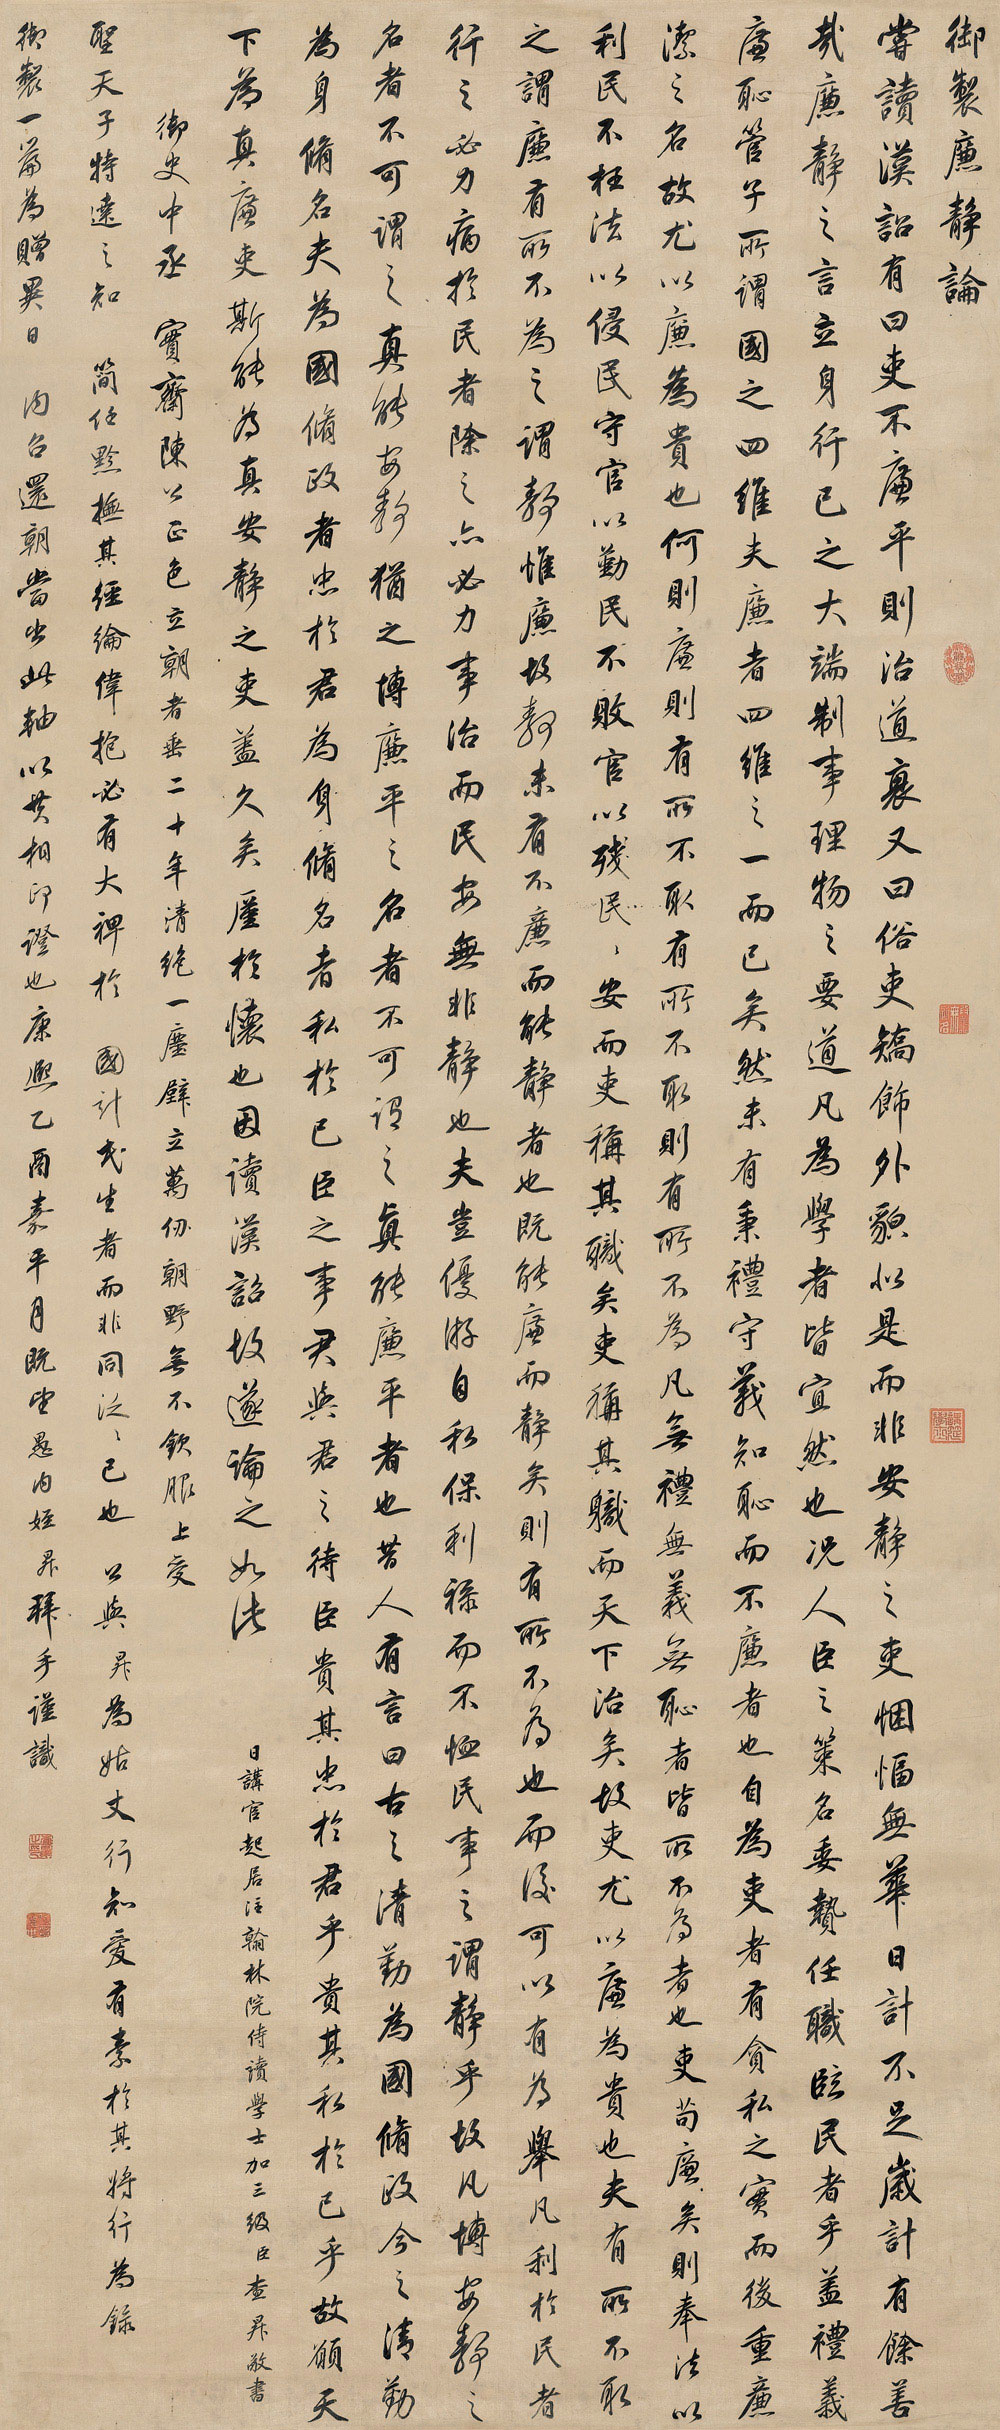 御製廉静論
嘗讀漢詔有曰吏不廉平則治道衰又曰俗吏矯飾外貌似是而非安静之吏悃愊無華日計不足歲計有餘善
哉廉静之言立身行已之大端制事理物之要道凡為學者皆宜然也况人臣之策名委贄任職臨民者乎蓋禮義
廉恥管子所謂國之四維夫廉者四維之一而已矣然未有秉禮守義知恥而不廉者也自為吏者有貪私之實而後重廉
潔之名故尤以廉為貴也何則廉則有所不取有所不取則有所不為凡無禮無義無恥者皆所不為者也吏苟廉矣則奉法以
利民不枉法以侵民守官以勤民不敗官以殘民民安而吏稱其職矣吏稱其職而天下治矣故吏尤以廉為貴也夫有所不取
之謂廉有所不為之謂静惟廉故静未有不廉而能静者也既能廉而静矣則有所不為也而後可以有為舉凡利於民者
行之必力病於民者除之亦必力事治而民安無非静也夫豈優游自私保利祿而不恤民事之謂静乎故凡博安静之
名者不可謂之真能安静猶之博廉平之名者不可謂之真能廉平者也昔人有言曰古之清勤為國脩政今之清勤
為身脩名夫為國脩政者忠於君為身脩名者私於已臣之事君與君之待臣貴其忠於君乎貴其私於已乎故願天
下為真廉吏斯能為真安静之吏蓋久矣厪於懷也因讀漢詔故遂論之如此
日講官起居注翰林院侍讀學士加三級臣查昇敬書
御史中丞 實齋陳公正色立朝者垂二十年清絶一塵壁立萬仞朝野無不欽服上受
聖天子特達之知 簡任黔撫其經綸偉抱必有大裨於 國計民生者而非同泛泛已也 公與昇為姑丈行知愛有素於其將行為錄
御製一篇為贈異日 内召還朝當出此軸以共相印證也康熙乙酉嘉平月既望愚内姪昇拜手謹識